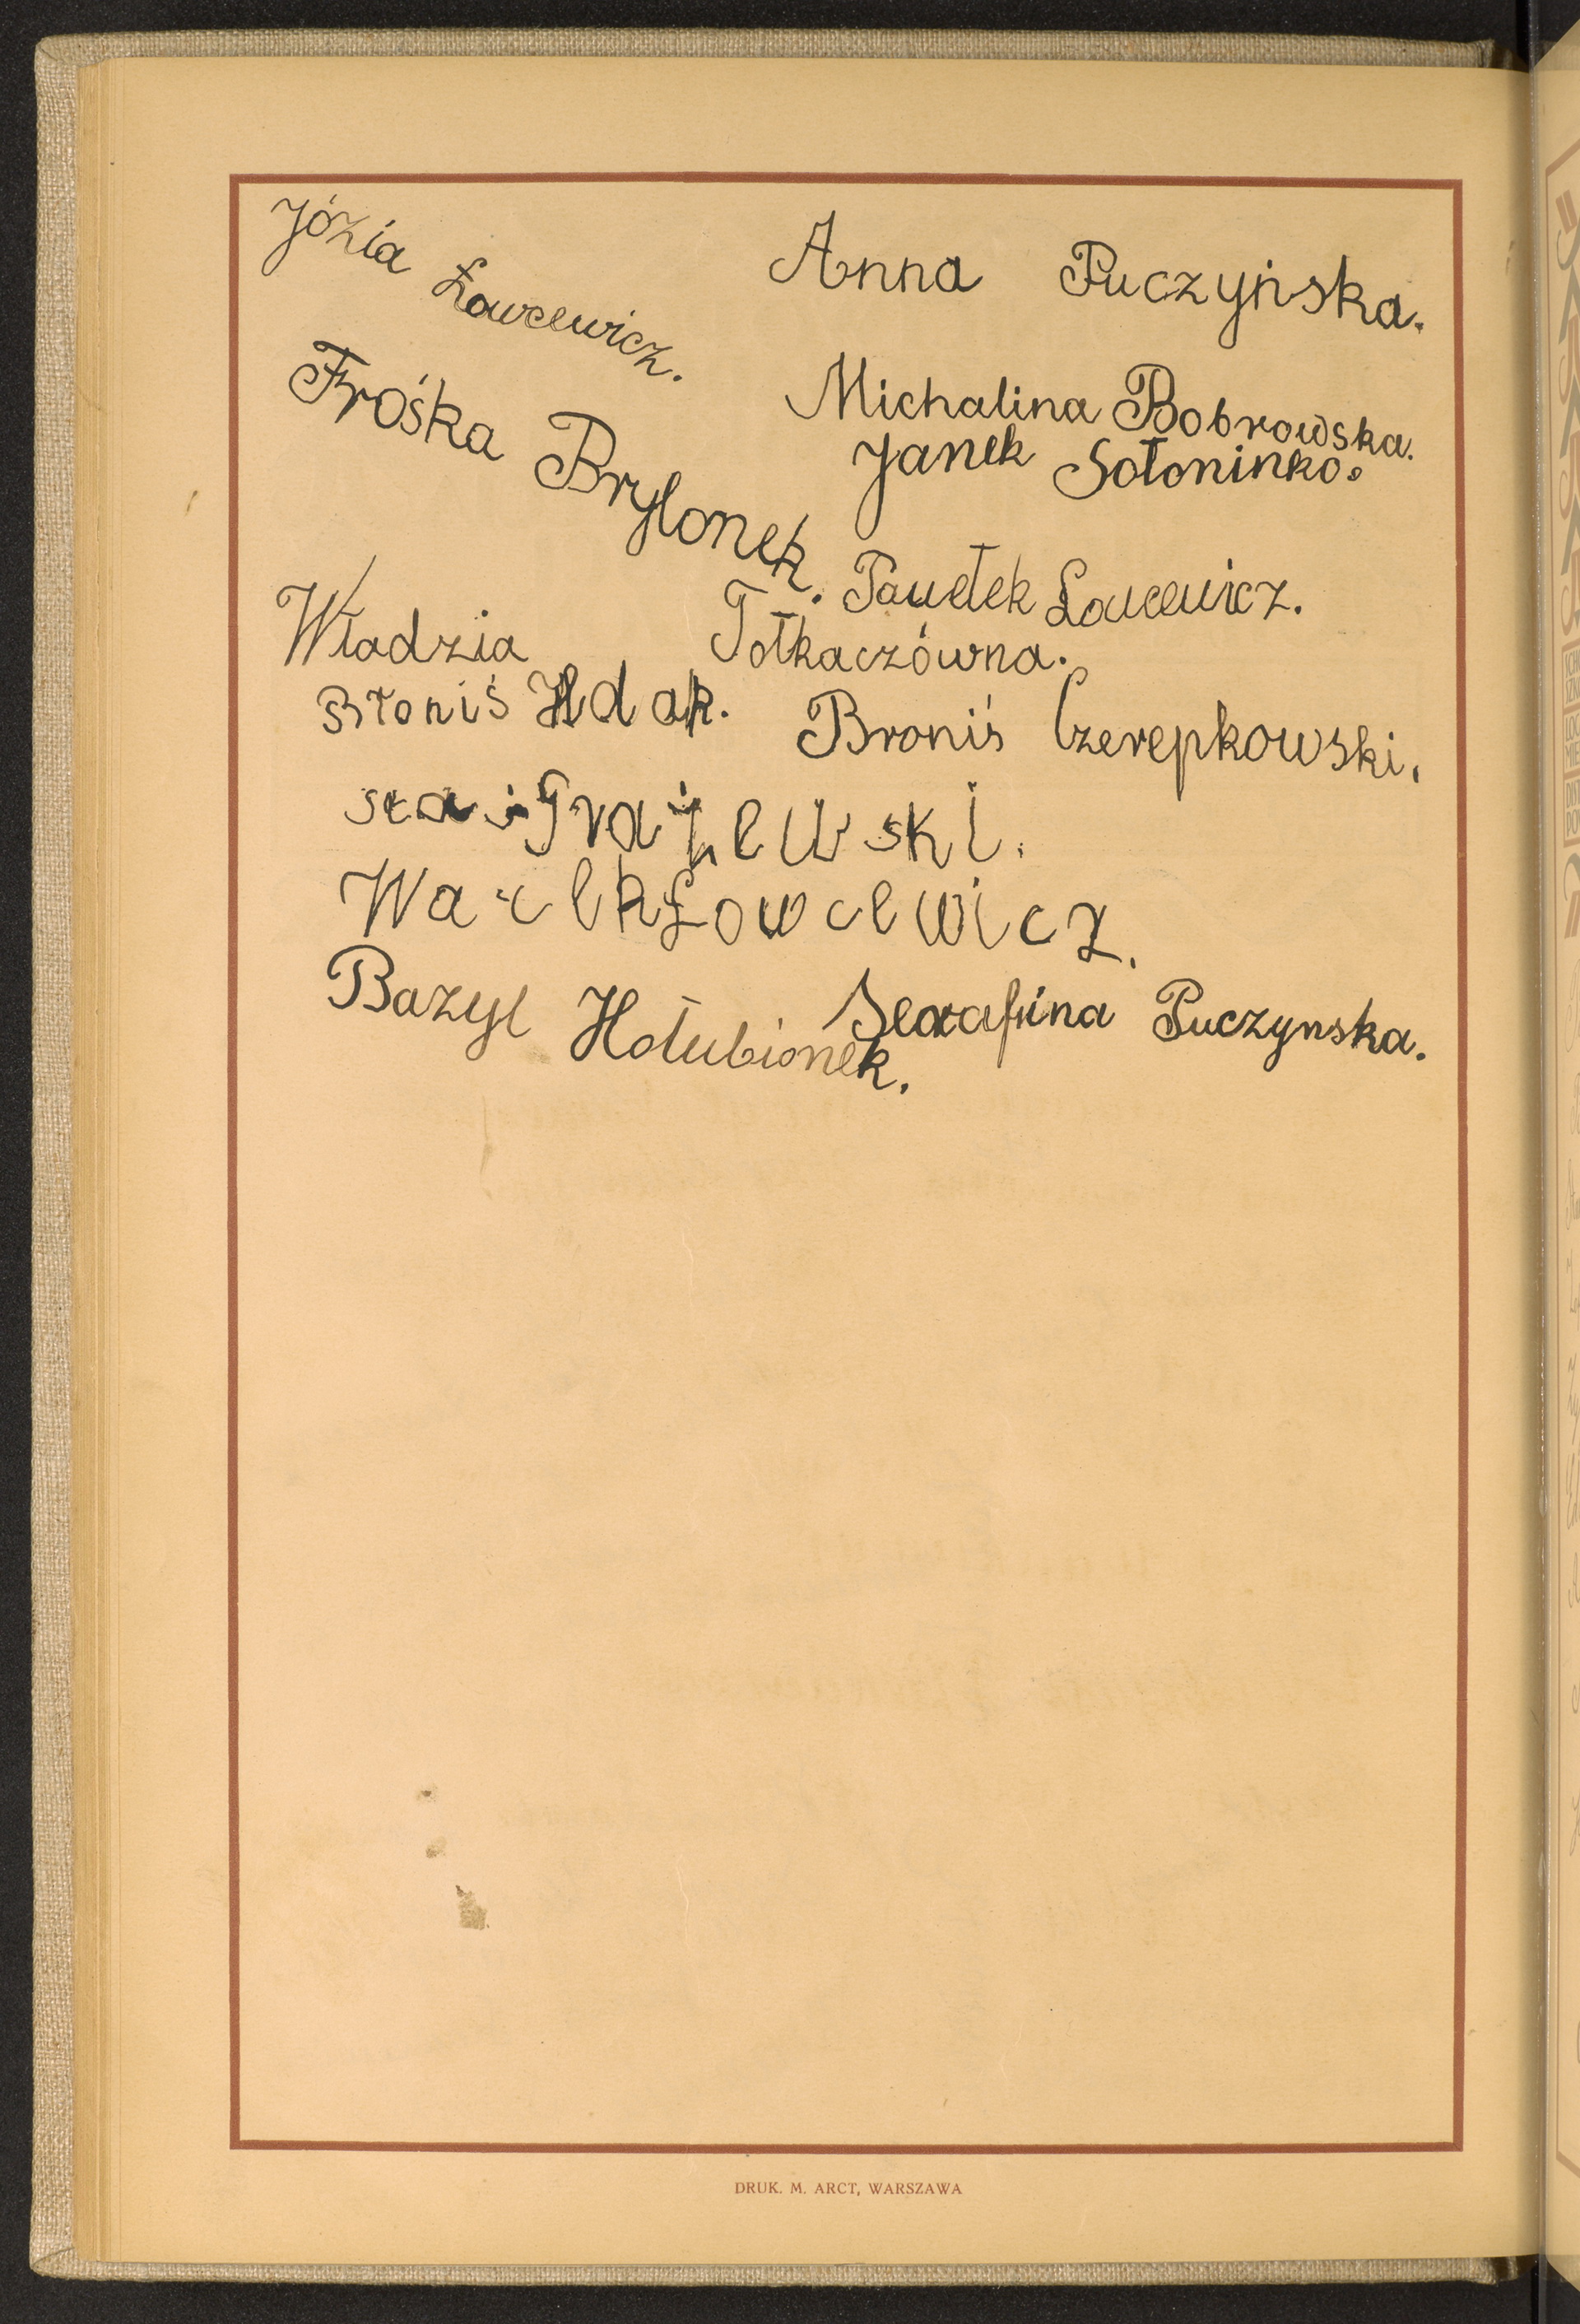 Józia Łowcewicz.
Anna Puczyńska.
Fróśka Brylonek.
Michalina Bobrowska.
Janek Sołoninko.
Pawełek Łowcewicz.
Władzia Tołkaczówna.
Broniś Hdak.
Broniś Czerepkowski.
Grażewski.
Łowcewicz.
Bazyl Hołubionek.
Serafina Puczynska.
DRUK. M. ARCT, WARSZAWA